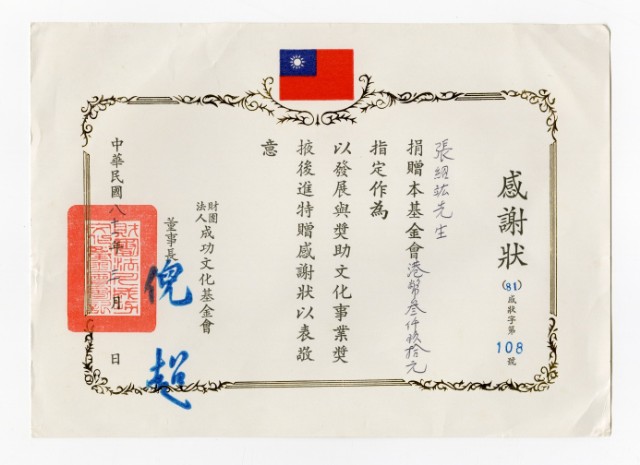 感謝狀
(81)成狀字第108號
張紹紘先生
捐贈本基金會港幣叁仟玖拾元
指定作為
以發展與獎助文化事業獎
掖後進特贈感謝狀以表敬
意
財團法人成功文化基金會
董事長
倪超
中華民國八十年月日